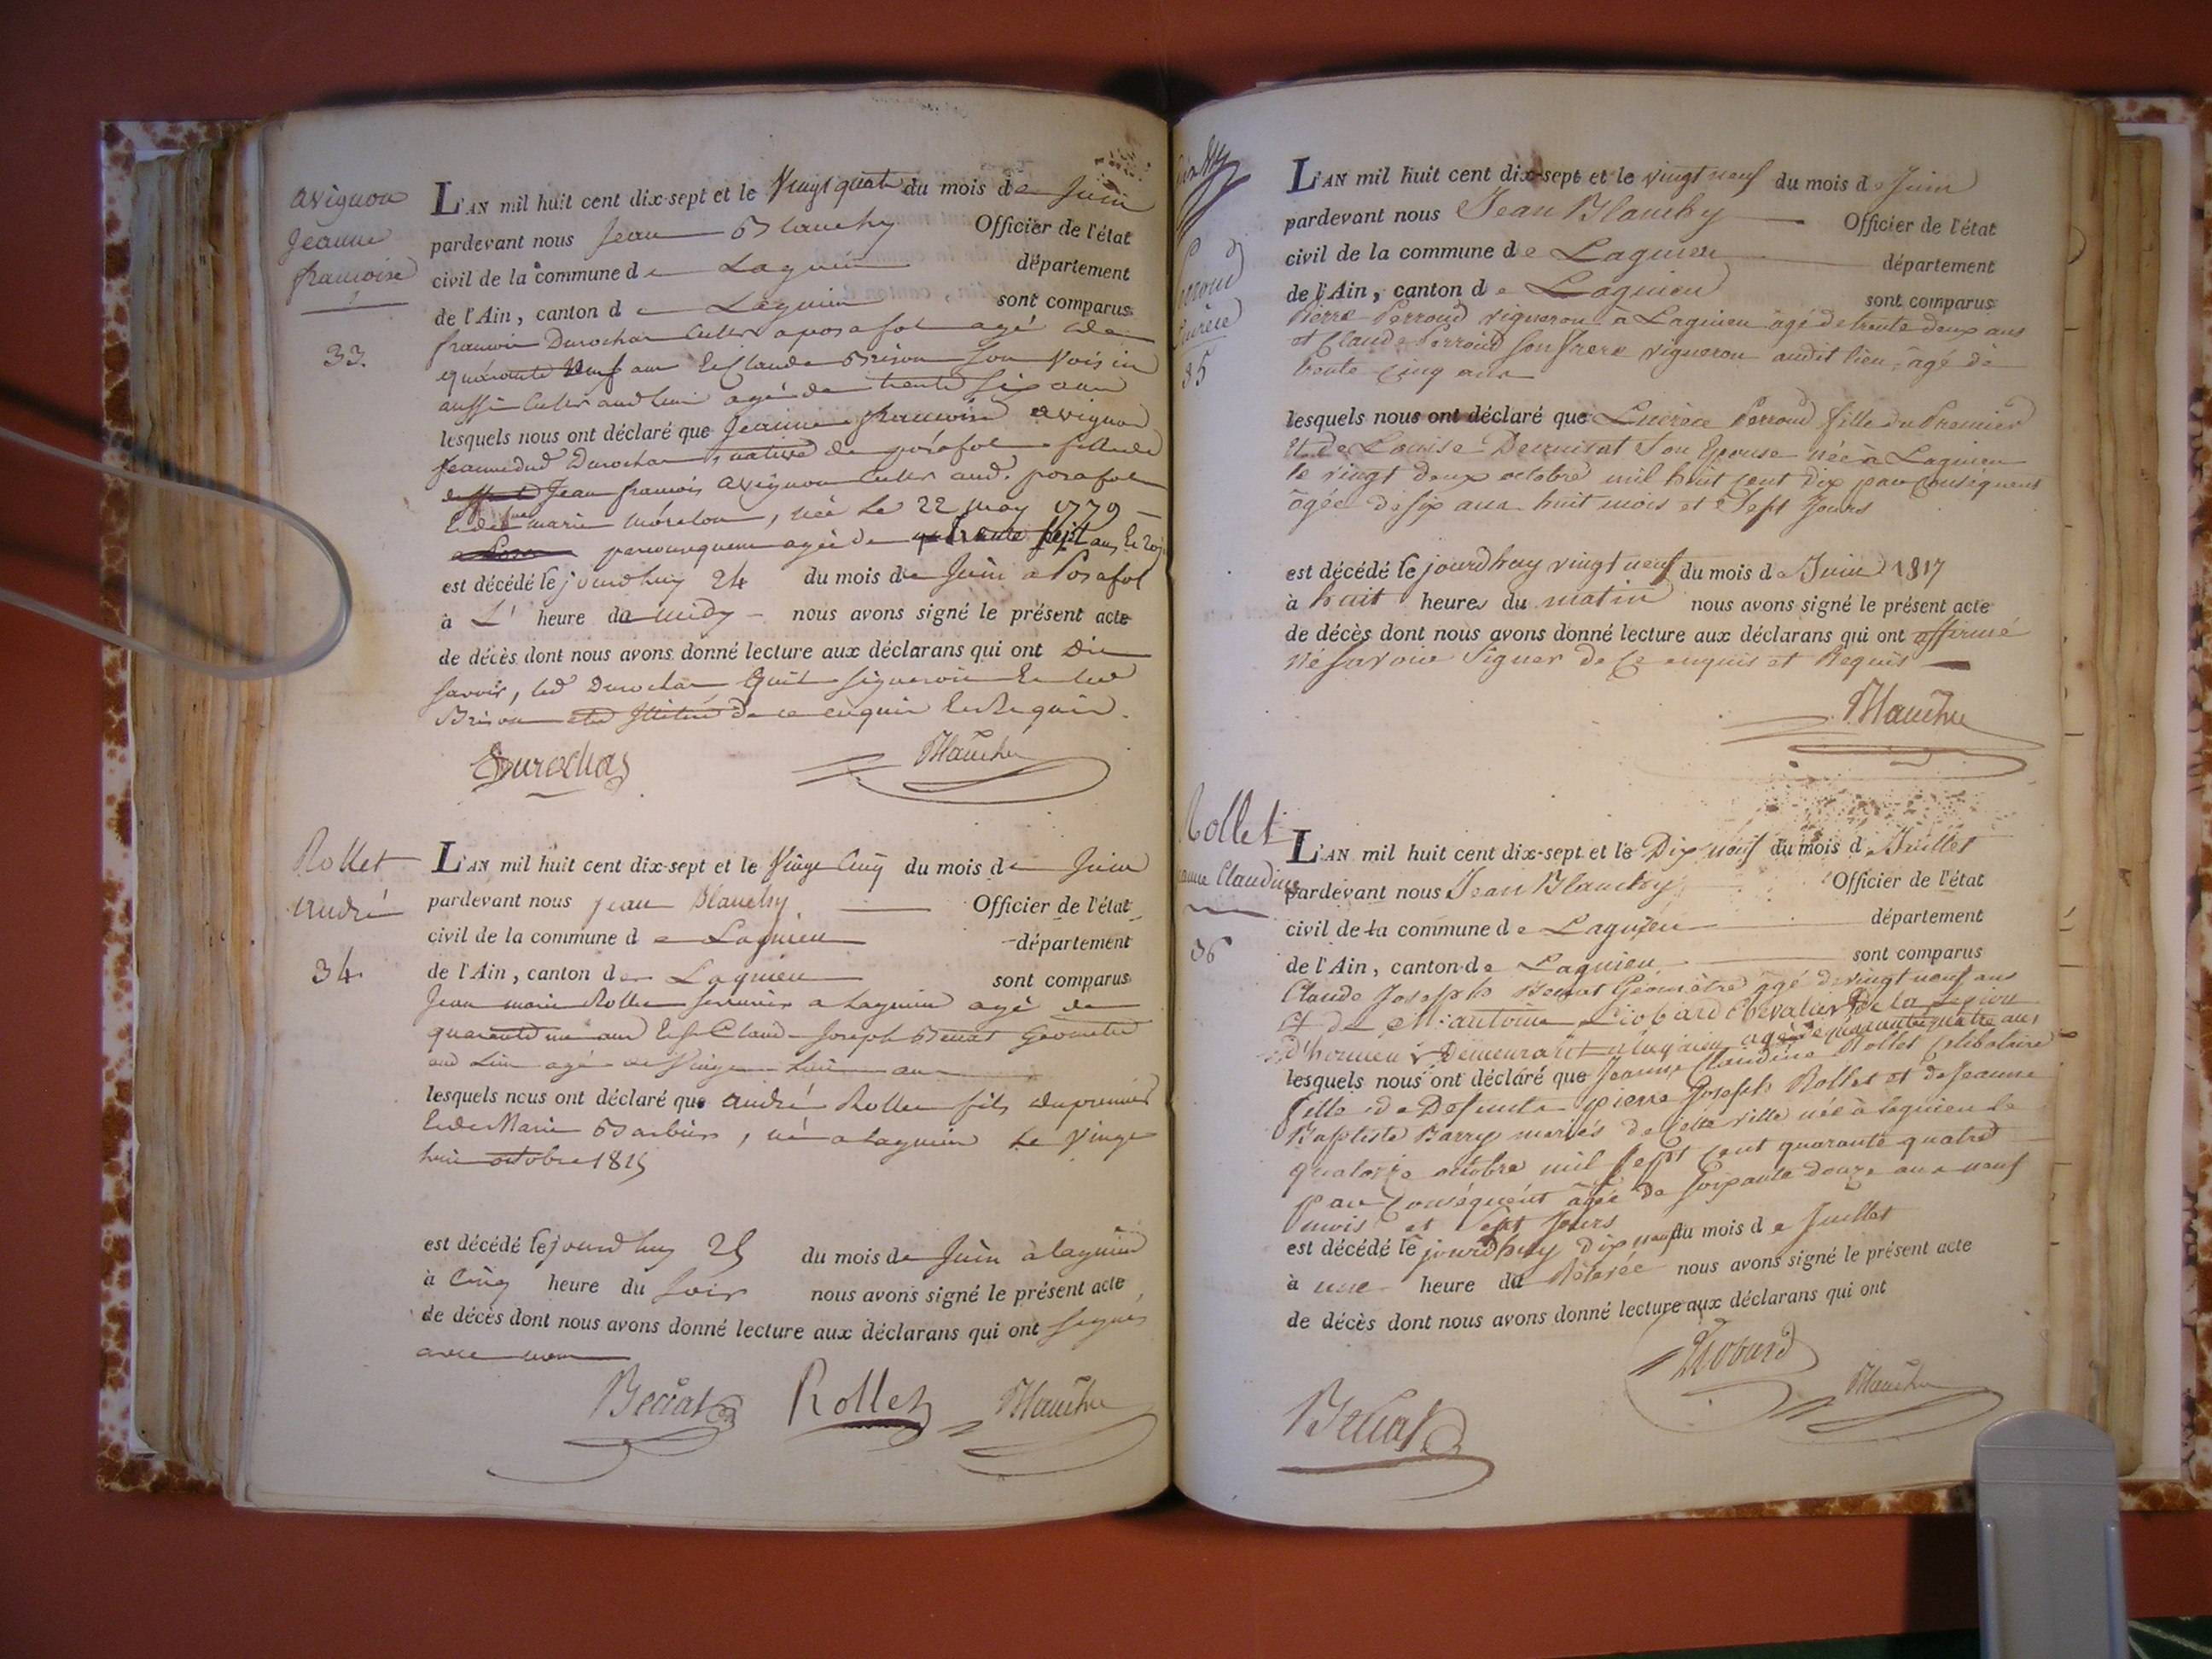 avignon
Jeanne
francoise
33.
L'AN mil huit cent dix-sept et le Vingt quatre du mois de Juin
pardevant nous Jean Blanchy Officier de l'état
civil de la commune de Lagnieu département
de l'Ain, canton de Lagnieu sont comparus
francois Durochat Cultr a posafol agé de
quarante neuf ans Et Claude Brison son Voisin
aussi Cultr audit lieu agé de trente six ans
lesquels nous ont déclaré que Jeanne francoise avignon
femme dud Durochat, native de posafol fille de
Jean francois avignon Cultr aud. posafol
Et de marie morelon, née le 22 may 1779
par conséquent agée de trente sept ans
est décédé le jourdhuy 24 du mois de Juin a Posafol
à L' heure de midy nous avons signé le présent acte
de décès dont nous avons donné lecture aux déclarans qui ont Dit
savoir, led Durochat quil signeroit Et led
Brison de ce enquis Et Requis.
Durochat Blanchy
Rollet
André
34.
L'AN mil huit cent dix-sept et le Vingt Cinq du mois de Juin
pardevant nous Jean Blanchy Officier de l'état
civil de la commune de Lagnieu département
de l'Ain, canton de Lagnieu sont comparus
Jean marie Rollet serrurier a Lagnieu agé de
quarante un ans Et Sr Claude Joseph Benat Geometre
aud Lieu agé de Vingt huit ans
lesquels nous ont déclaré que André Rollet fils du premier
Et de Marie Barbier, né a Lagnieu le Vingt
huit octobre 1815
est décédé le jourdhuy 25 du mois de Juin à lagnieu
à Cinq heure du soir nous avons signé le présent acte
de décès dont nous avons donné lecture aux déclarans qui ont signé
avec nous
Benat Rollet Blanchy
Perroud
Lucrèce
35
L'AN mil huit cent dix-sept et le vingt neuf du mois de Juin
pardevant nous Jean Blanchy Officier de l'état
civil de la commune de Lagnieu département
de l'Ain, canton de Lagnieu sont comparus
Pierre Perroud vigneron à Lagnieu âgé de trente deux ans
et Claude Perroud son frere vigneron audit lieu, âgé de
trente cinq ans
lesquels nous ont déclaré que Lucrèce Perroud fille du Premier
Et de Louise son Epouse née à Lagnieu
le vingt deux octobre mil huit cent dix par Conséquent
âgée de six ans huit mois et Sept Jours
est décédé le jourdhuy vingt neuf du mois de Juin 1817
à huit heures du matin nous avons signé le présent acte
de décès dont nous avons donné lecture aux déclarans qui ont affirmé
né savoir Signer de Ce enquis et Requis
Blanchy
Rollet
Jeanne Claudine
36
L'AN mil huit cent dix-sept et le Dix neuf du mois de Juillet
pardevant nous Jean Blanchy Officier de l'état
civil de la commune de Lagnieu département
de l'Ain, canton de Lagnieu sont comparus
Claude Joseph Benat Géomètre âgé de vingt neuf ans
Et de Mr antoine Liobard Chevalier de la Legion
d'honneur Demeurant a lagnieu agé de quarante quatre ans
lesquels nous ont déclaré que Jeanne Claudine Rollet Celibataire
fille de Defunts pierre Joseph Rollet et de Jeanne
Baptiste Barry mariés de Cette ville née à lagnieu le
quatorze octobre mil sept cent quarante quatre
par Conséquent âgée de soixante douze ans neuf
mois et Sept Jours
est décédé le jourdhuy dix neuf du mois de Juillet
à une heure du nous avons signé le présent acte
de décès dont nous avons donné lecture aux déclarans qui ont
Liobard
Blanchy
Benat